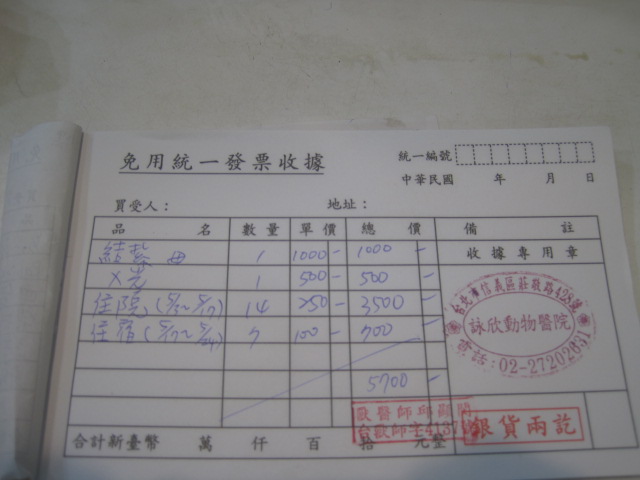 免用統一發票收據
統一編號
中華民國 年 月 日
買受人： 地址：
品 名 數量 單價 總 價 備 註
結紮 母 1 1000- 1000 -
收據專用章
X光 1 500- 500 -
住院 14 250- 3500 -
住宿 7 100- 700 -
5700 -
台北市信義區莊敬路428號
詠欣動物醫院
電話：02-27202651
獸醫師邱顯閔
銀貨兩訖
合計新臺幣 萬 仟 百 拾 元整